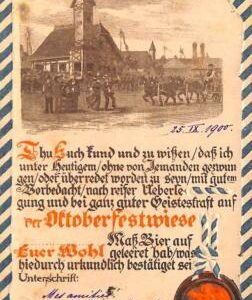 25. IX. 1900.
Thu Euch kund und zu wißen/daß ich
unter Heutigem/ohne von Jemanden gezwun
gen/oder überredet worden zu seyn/mit gut
Vorbedacht/nach reifer Ueberle
gung und bei ganz guter Geisteskraft auf
der Oktoberfestwiese
Euer Wohl Maß Bier auf
geleert hab/was
hiedurch urkundlich bestätiget sei
Unterschrift: